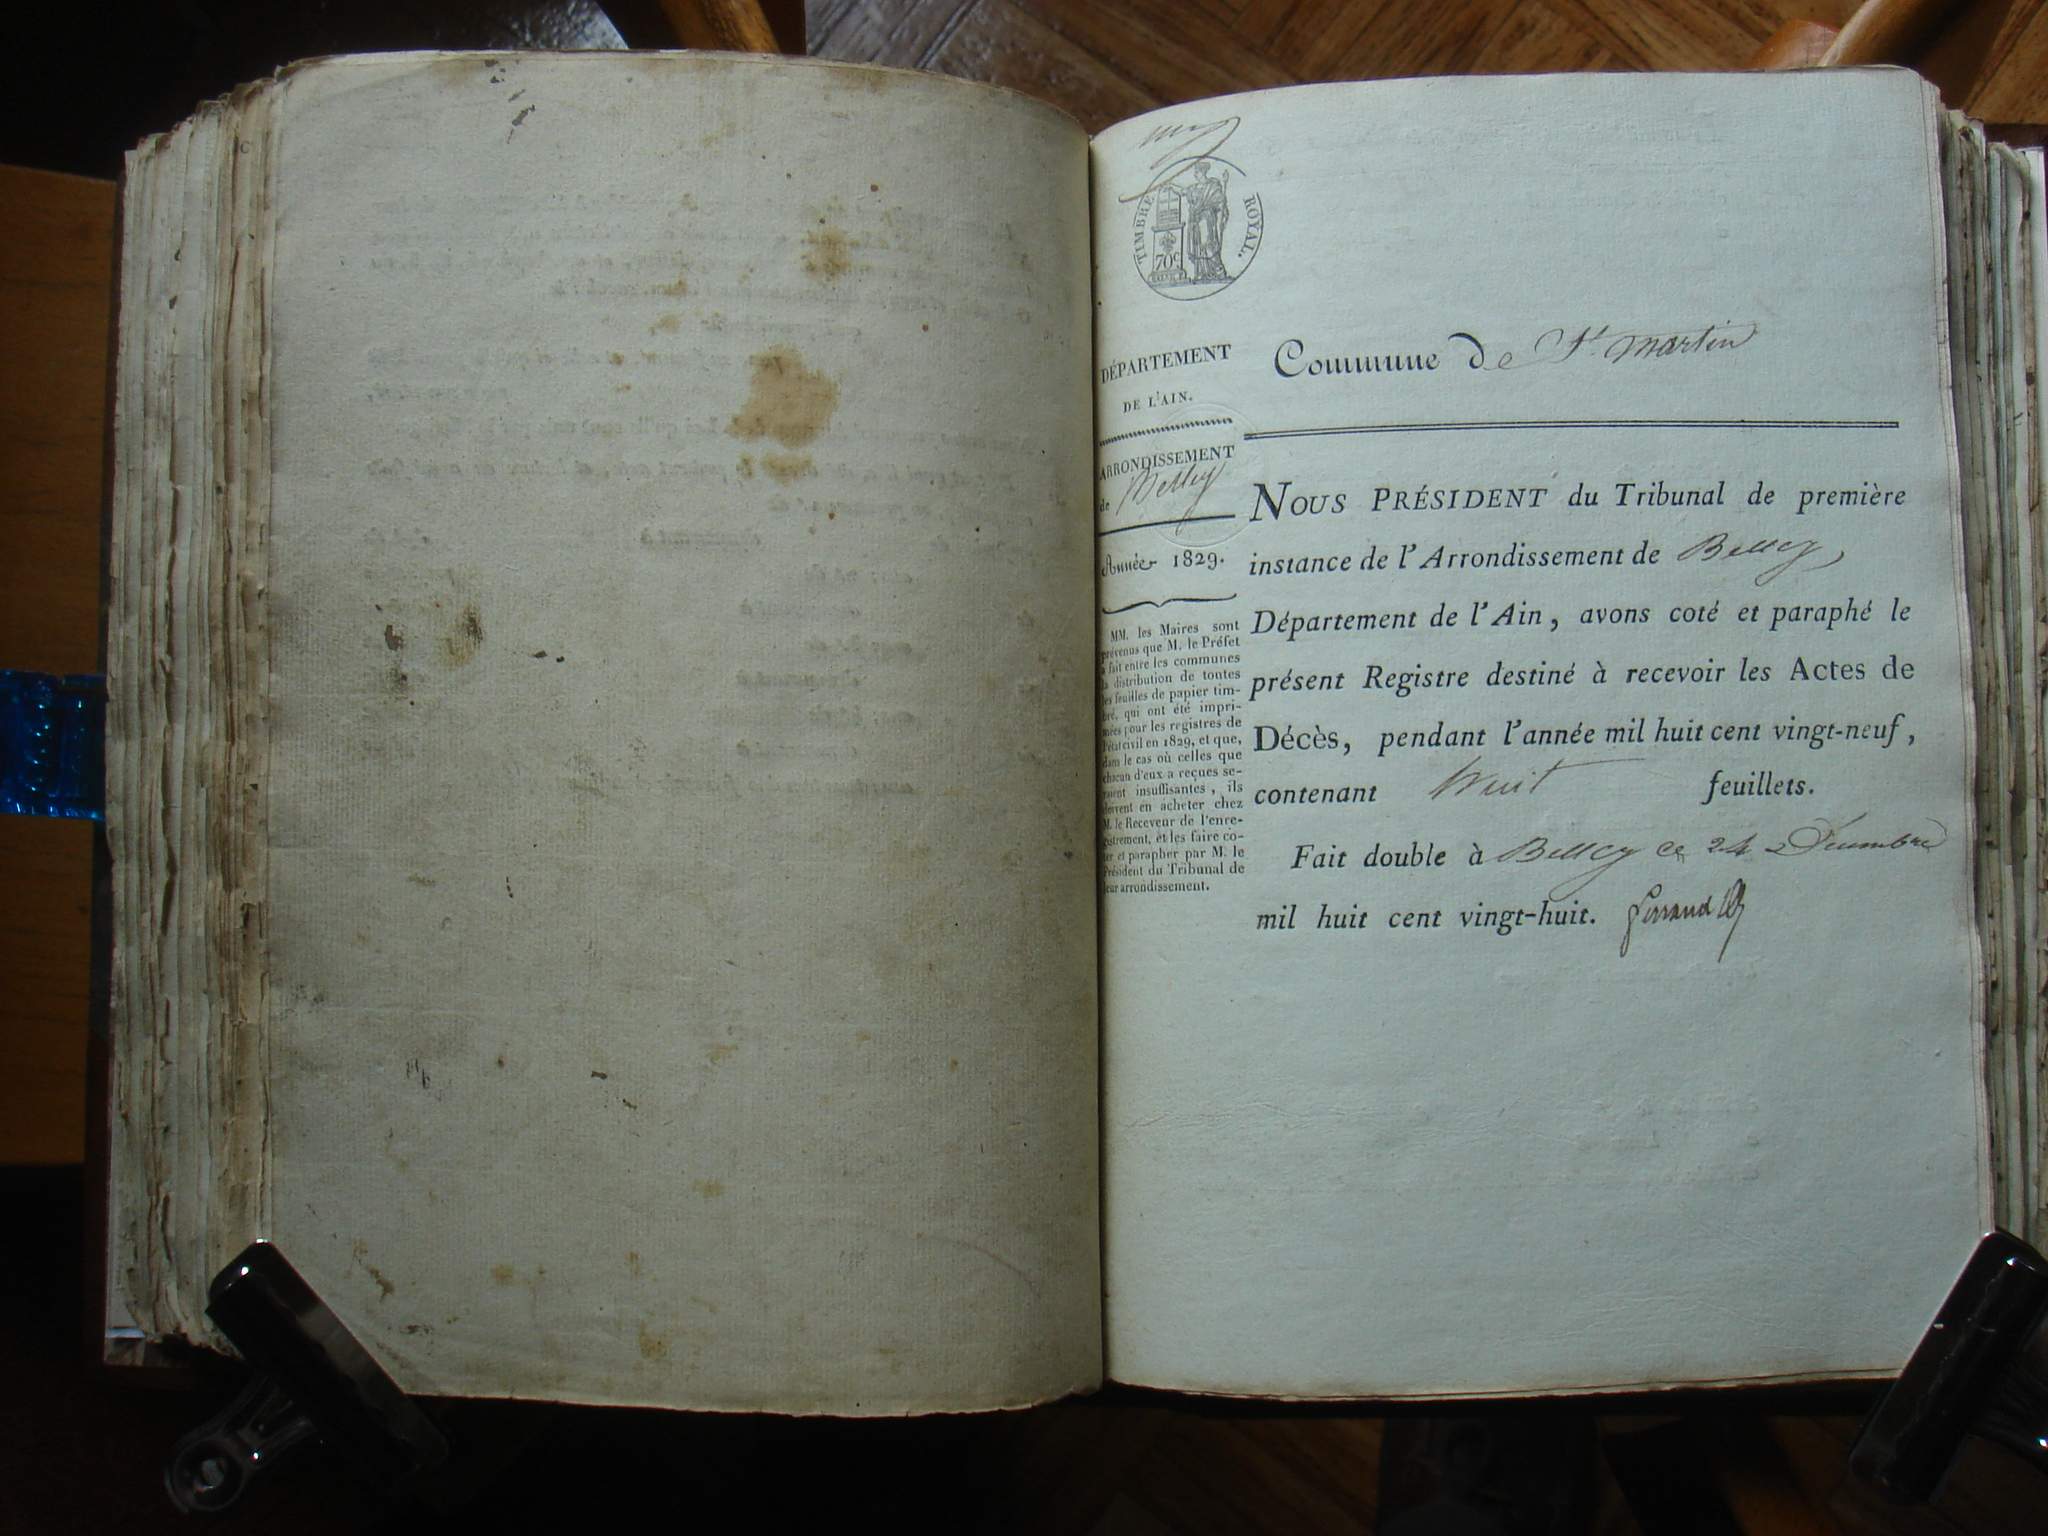 TIMBRE ROYAL.
70c
DÉPARTEMENT
DE L'AIN.
ARRONDISSEMENT
de Belley
Année 1829.
MM. les Maires sont
prévenus que M. le Préfet
a fait entre les communes
la distribution de toutes
les feuilles de papier tim-
bré, qui ont été impri-
mées pour les registres de
l'état civil en 1829, et que,
dans le cas où celles que
chacun d'eux a reçues se-
raient insuffisantes, ils
doivent en acheter chez
M. le Receveur de l'enre-
gistrement, et les faire co-
ter et parapher par M. le
Président du Tribunal de
leur arrondissement.
Commune de St Martin
NOUS PRÉSIDENT du Tribunal de première
instance de l'Arrondissement de Belley,
Département de l'Ain, avons coté et paraphé le
présent Registre destiné à recevoir les Actes de
Décès, pendant l'année mil huit cent vingt-neuf,
contenant huit feuillets.
Fait double à Belley ce 24 Décembre
mil huit cent vingt-huit.